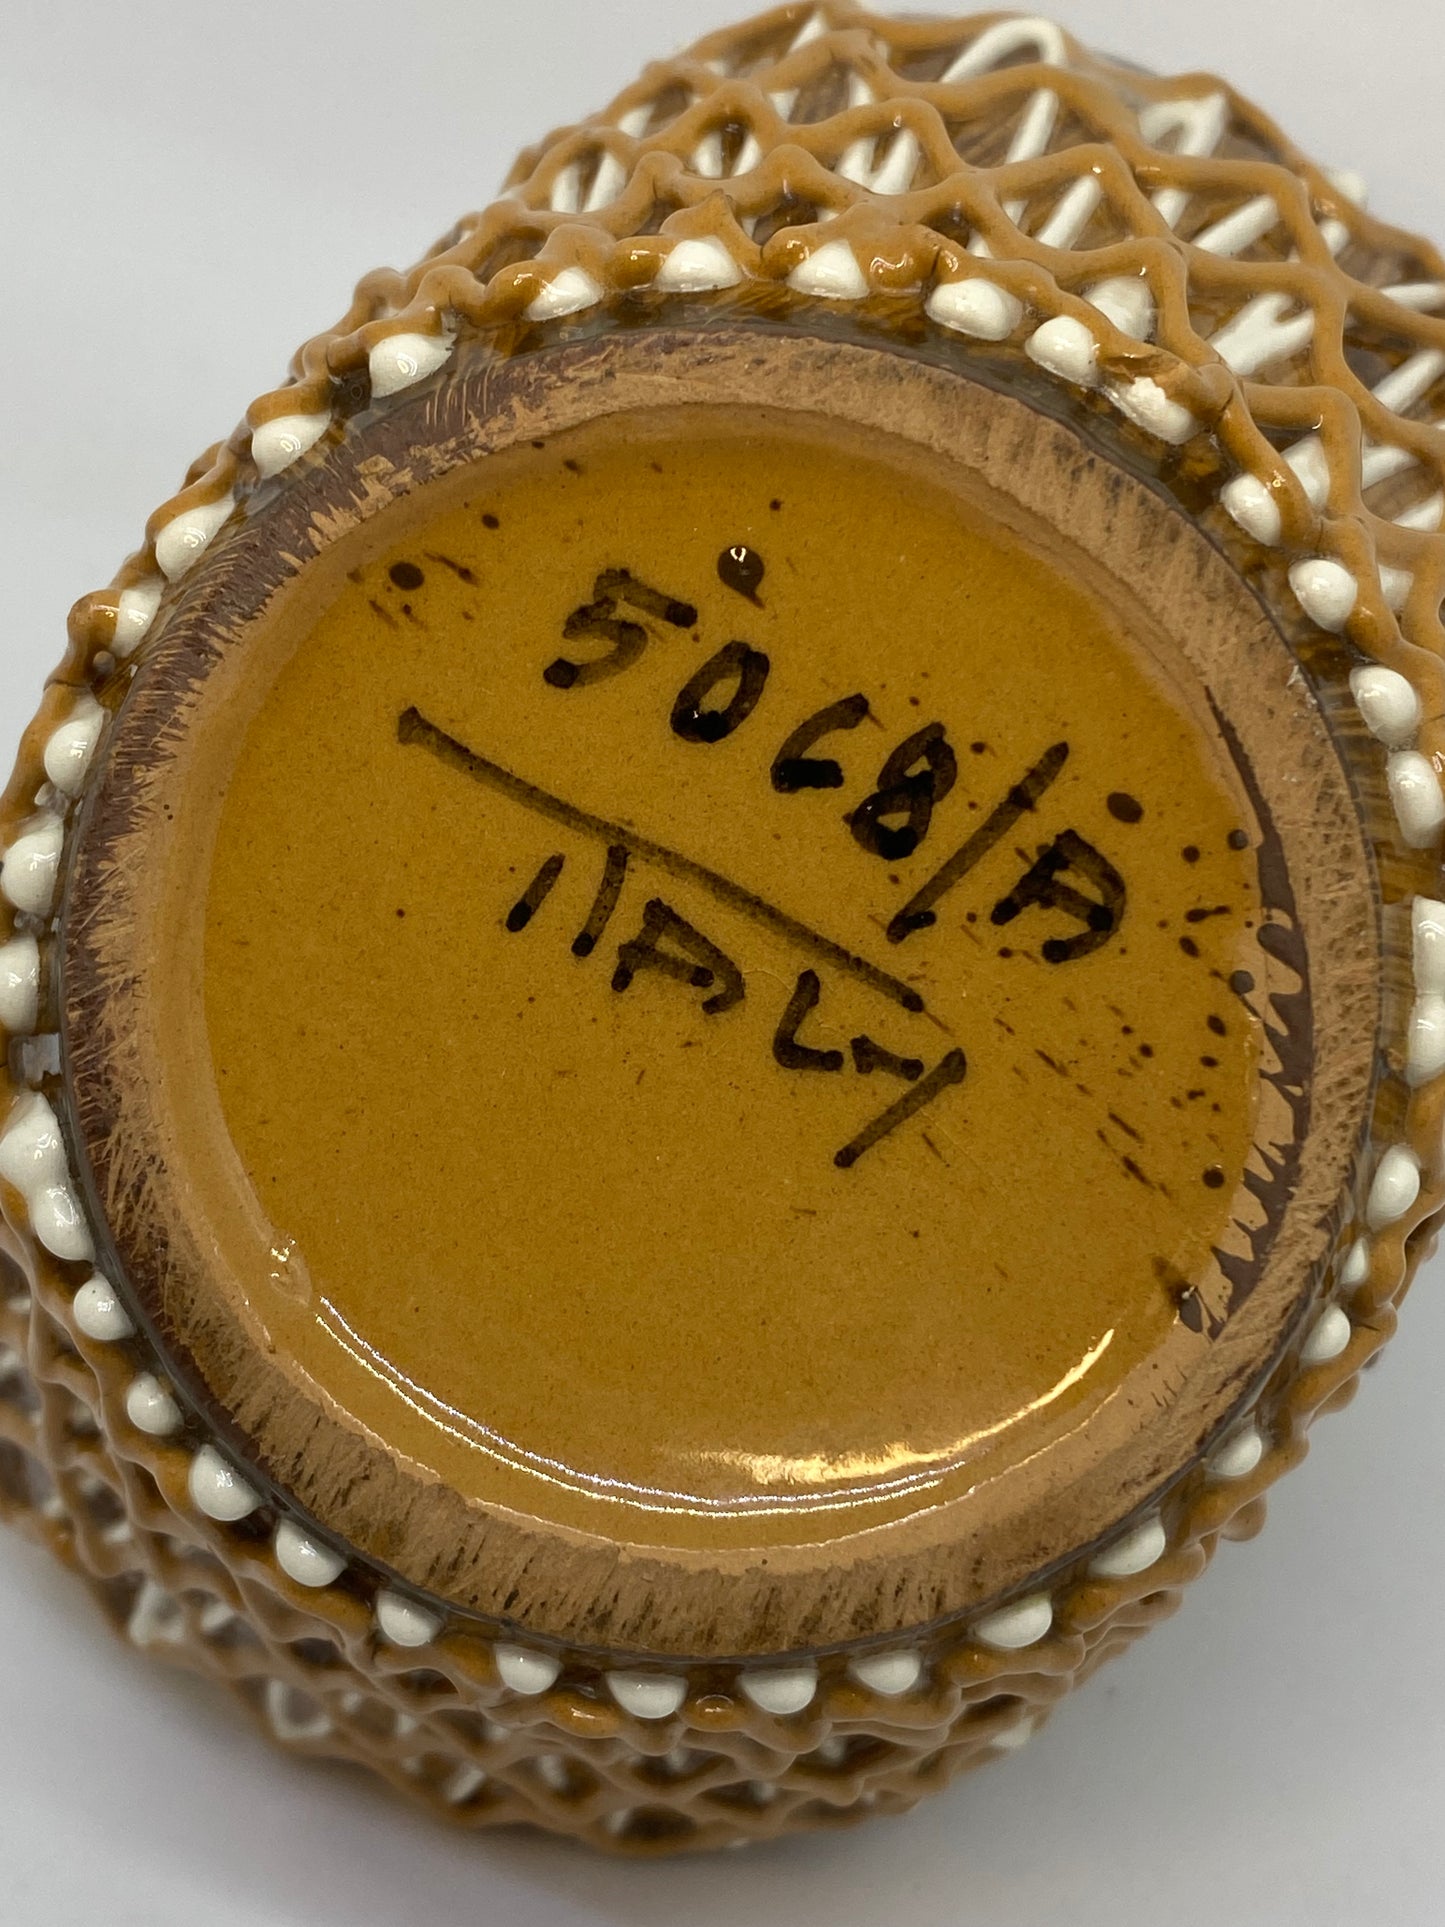 5068/A
ITALY